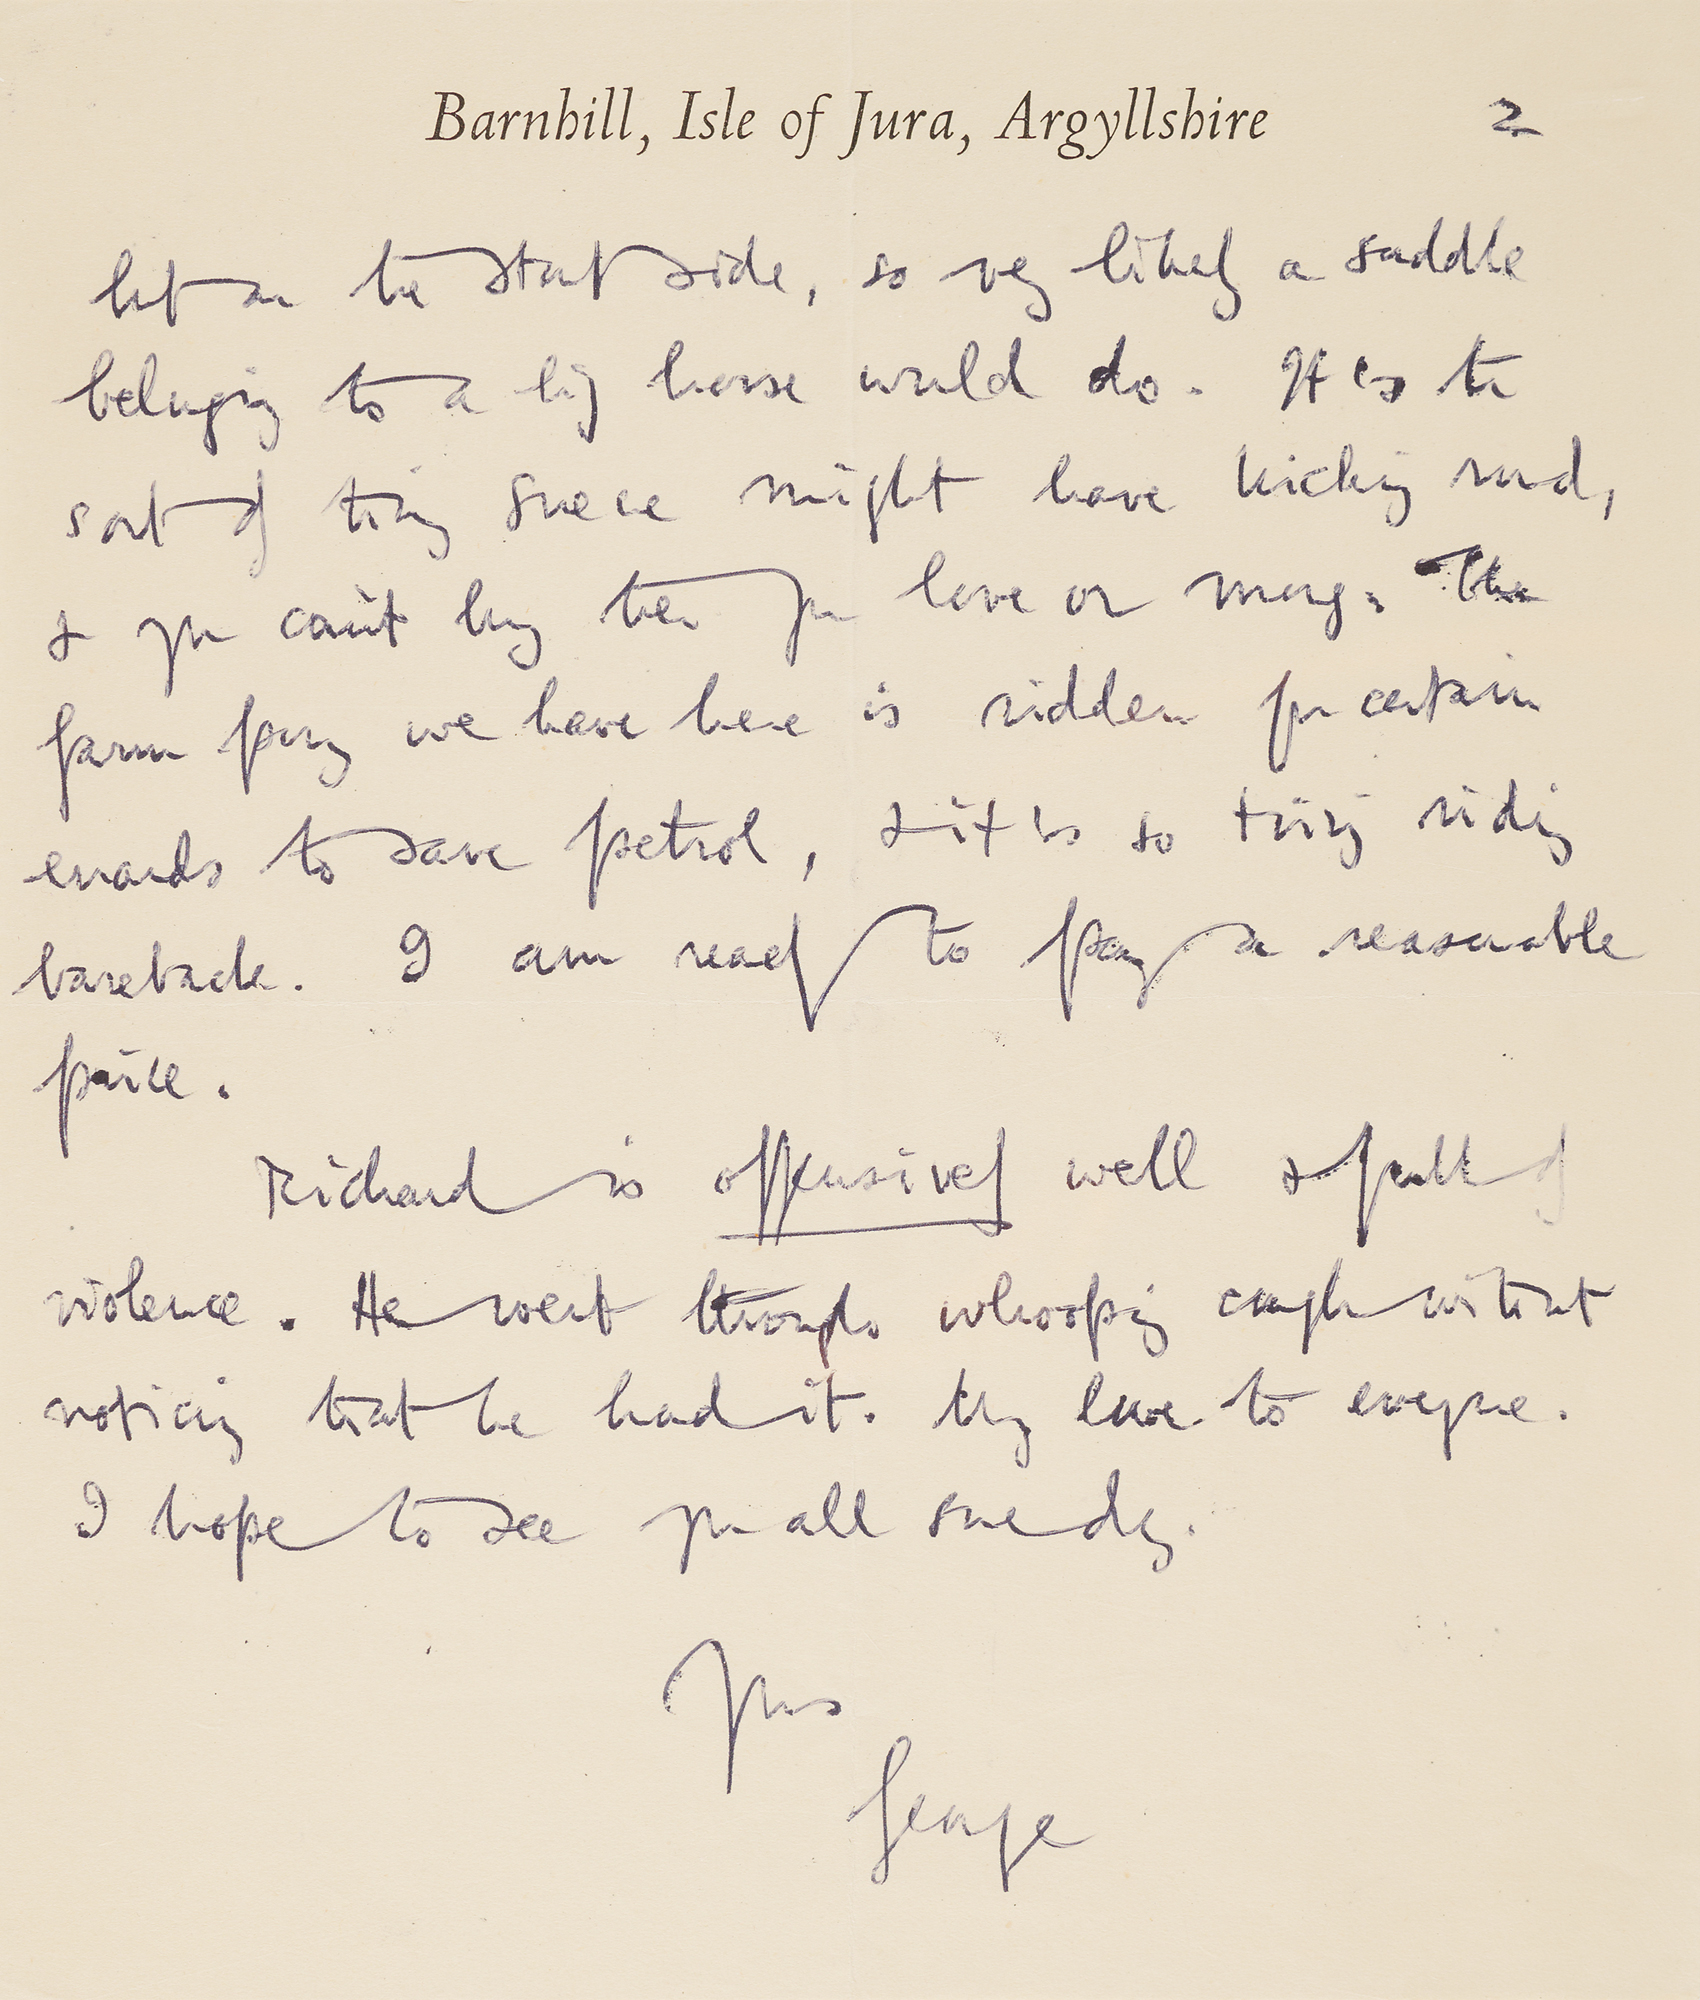 Barnhill, Isle of Jura, Argyllshire 2
but on the stout side, so very likely a saddle
belonging to a big horse would do. It is the
sort of thing someone might have kicking round,
& you can't buy them for love or money. The
farm pony we have here is ridden for certain
errands to save petrol, & it is so tiring riding
bareback. I am ready to pay a reasonable
price.
Richard is offensively well & full of
violence. He went through whooping cough without
noticing that he had it. My love to everyone.
I hope to see you all some day.
Yours
George